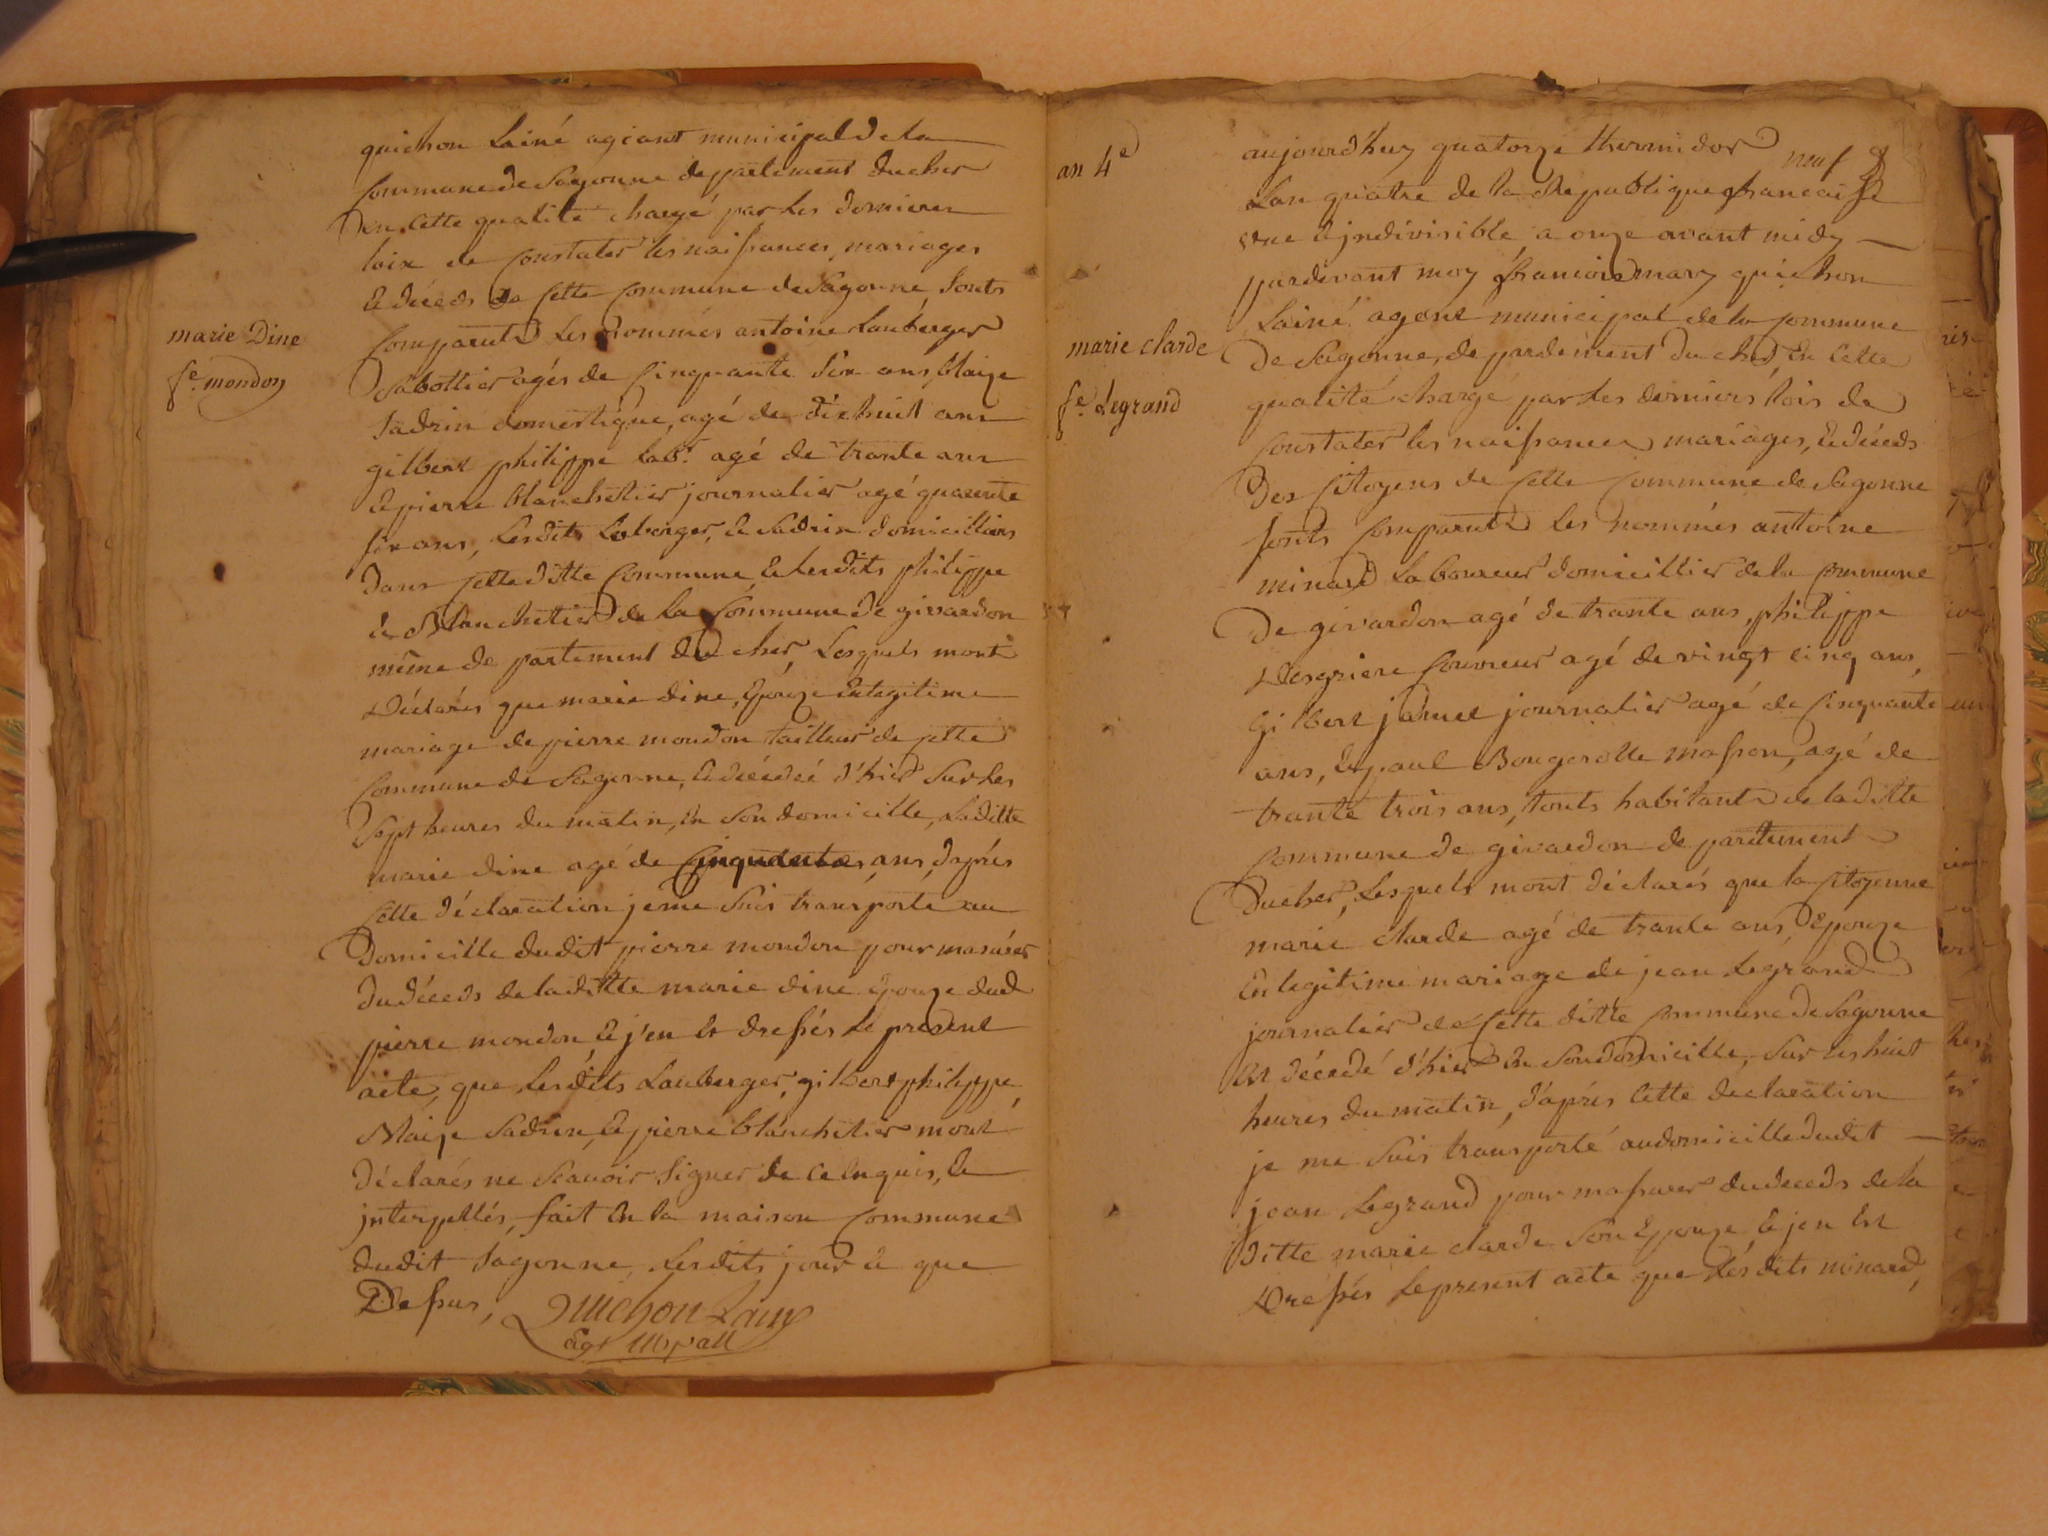 quichon Lainé agiant municipal de la
Commune de Sagonne departement du cher
En Cette qualité chargé par les dernieres
loix de Constater les naissances, mariages
& décès de Cette Commune de Sagonne, Sonts
marie Dine
fe. mondon
Comparuts Les nommés antoine Lauberger
Sabottier agés de Cinquante Six ans, blaize
Sadrin domestique, agé de dixhuit ans
gilbert philippe lab.r agé de trante ans
& pierre blanchetier journalier agé quarente
six ans, Lesdits Loberger, & Sadrin domicilliers
dans cette ditte Commune, & lesdits philippe
& Blanchetier de la Commune de givardon
même de partement du cher, Lesquels mont
déclarés que marie dine, Epouze En legitime
mariage de pierre mondon tailleur de cette
Commune de Sagonne, & décédéé d'hier Sur les
Sept heures du matin, En Son domicille, Laditte
marie dine agé de Cinquantes, ans, daprés
Cette déclaration je me Suis transporté au
Domicille dudit pierre mondon pour masurer
du déceds de laditte marie dine Epouze dud
pierre mondon & j'en Et dressés Le present
acte, que Lesdits Lauberger, gilbert philippe,
Blaize Sadrin, & pierre blanchetier mont
déclarés ne Scavoir Signer de Ce Enquis, &
jnterpellés, fait En la maison Commune
dudit Sagonne, Lesdits jour & que
Dessus, Quichon Lainé
agt mpall
an 4e
neuf
aujourd'huy quatorze thermidor
Lan quatre de la Republique francaise
une & jndivisible, a onze avant midy
pardevant moy francois mary quichon
Lainé agent municipal de la Commune
marie clarde
fe. Legrand
De Sagonne, de pardement du cher, En Cette
qualité chargé par les derniers lois de
Constater les naissances mariages, & déceds
Des Citoyens de Cette Commune de Sagonne
Sonts Comparuts les nommés antoine
minard Laboureur domicillier de la Commune
De givardon agé de trante ans, philippe
Couvreur agé de vingt cinq ans,
gilbert jamet journalier agé de Cinquante
ans, & paul Bougerolle masson, agé de
trante trois ans, touts habitants de laditte
Commune de givardon de partement
Ducher, Lesquels mont déclarés que la Citoyenne
marie clarde agé de trante ans, Epouze
En legitime mariage de jean Legrand
journalier de Cette ditte Commune de Sagonne
Et décédé d'hier En Son domicille, Sur les huit
heures du matin, d'aprés Cette declaration
je me Suis transporté au domicille dudit
jean Legrand pour massurer du deceds de la
ditte marie clarde Son Epouze, & jen Et
Dressés Le present acte que Lesdits minard,